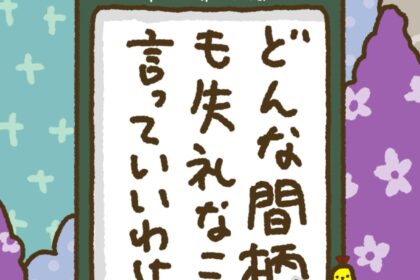 どんな間柄
も失礼なこ
言っていいわけ